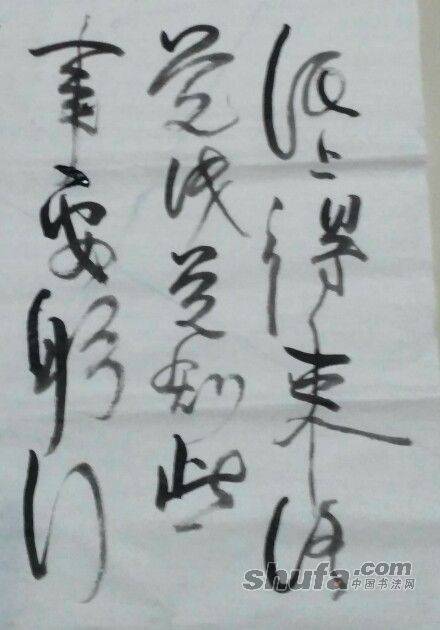 纸上得来终
觉浅觉知此
事要躬行
shufa.com
中国书法网